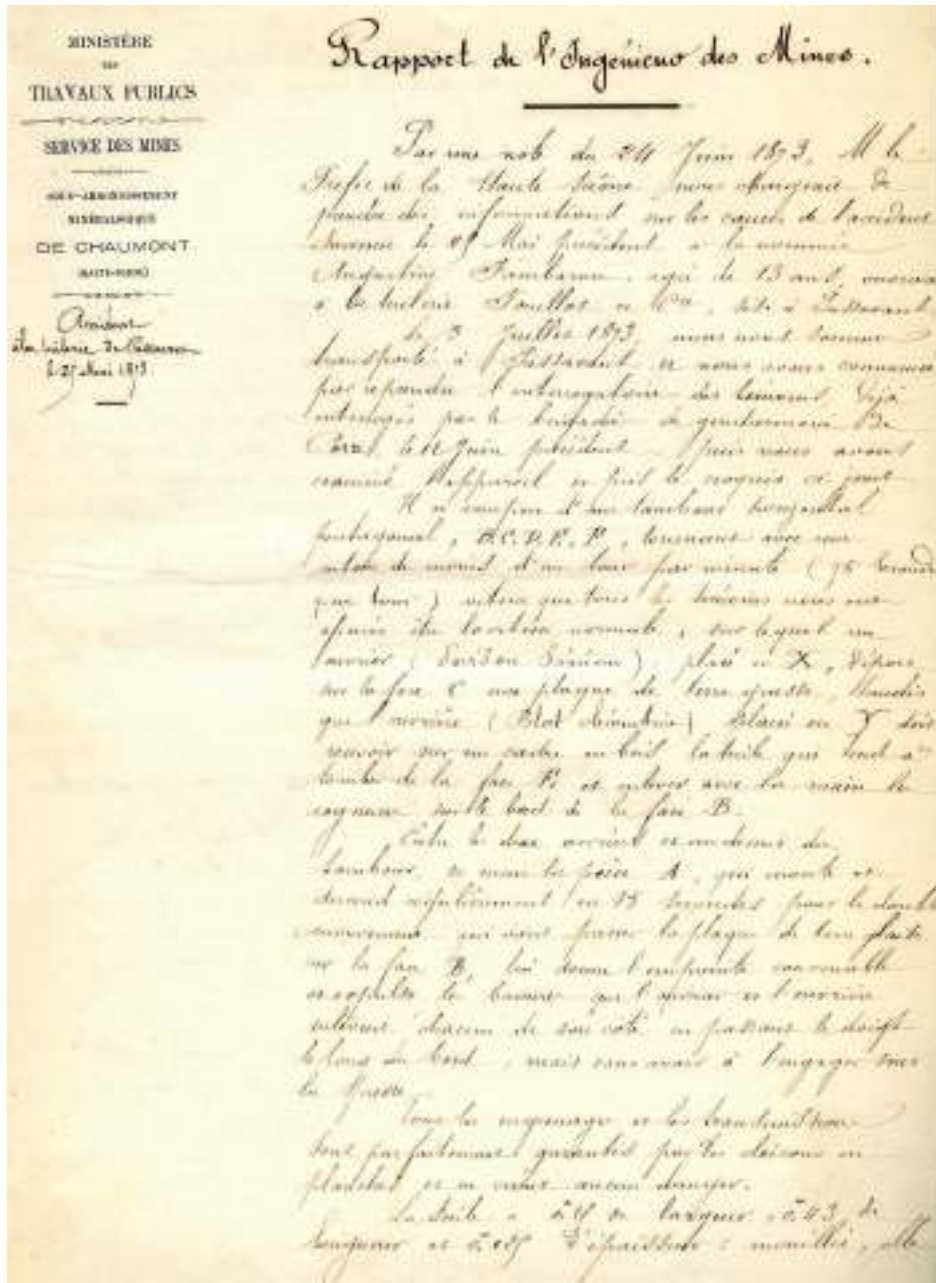 MINISTÈRE
DES
TRAVAUX PUBLICS
SERVICE DES MINES
SOUS-ARRONDISSEMENT
MINÉRALOGIQUE
DE CHAUMONT
(HAUTE-MARNE)
Accident
à la tuilerie de Passavant
27 Mai 1873
Rapport de l'Ingénieur des Mines.
Par une note du 24 Juin 1873, M le
Préfet de la Haute Saône nous chargeait de
prendre des informations sur les causes de l'accident
survenu le Mai précédent à la nommée
Augustine âgée de 13 ans, ouvrière
à la tuilerie et Cie, sise à Passavant.
Le 3 Juillet 1873, nous nous sommes
transporté à Passavant et nous avons commencé
par reprendre l'interrogatoire des témoins déjà
interrogés par le brigadier de gendarmerie de
le 12 Juin précédent. Puis nous avons
examiné l'appareil et pris le croquis ci-joint
Il se compose d'un tambour horizontal
pentagonal, B.C.D.E.F, tournant avec une
vitesse de moins d'un tour par minute (75 secondes
par tour) vitesse que tous les témoins nous ont
être la vitesse normale, sur lequel un
ouvrier ( ), placé en X, dépose
sur la face C une plaque de terre épaisse, tandis
que l'ouvrière ( ) placée en Y doit
recevoir sur un cadre en bois la tuile qui tend à
tomber de la face et enlever avec la main les
rognures sur le bord de la face B.
Entre les deux ouvriers et au dessus du
tambour, se meut la pièce A, qui monte et
descend régulièrement en 15 secondes pour le double
mouvement, qui vient presser la plaque de terre placée
sur la face B, lui donne l'empreinte convenable
et expulse les bavures que l'ouvrier et l'ouvrière
enlèvent chacun de son côté en passant le doigt
le long du bord, mais sans avoir à l'engager sous
la presse.
Tous les engrenages et les transmissions
sont parfaitement garantis par des cloisons en
planches et en aucun danger.
La tuile a de largeur 0m43 de
longueur et d'épaisseur : mouillée, elle